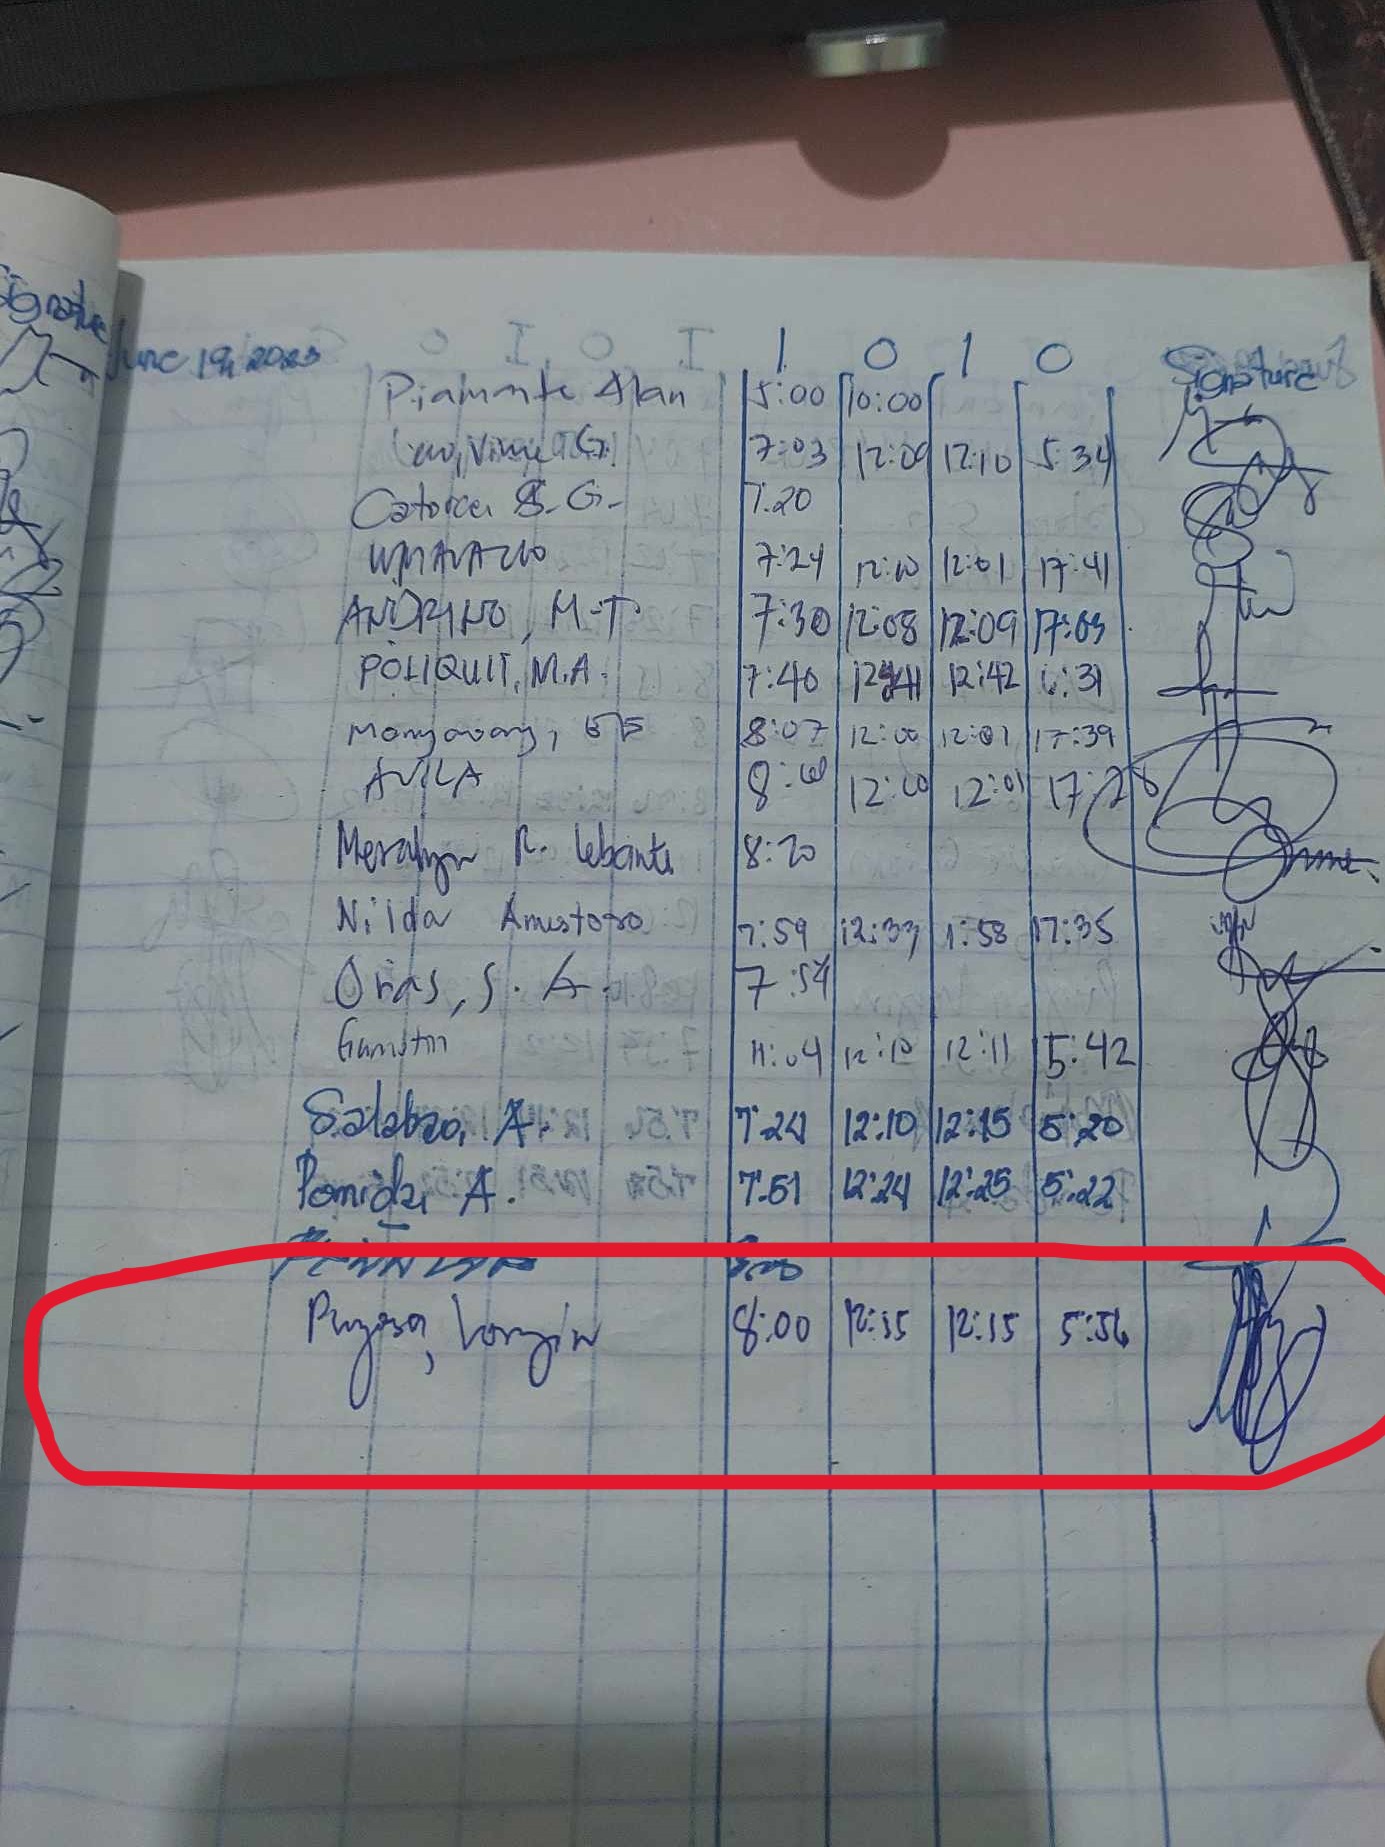 Signature
June 19, 2023 1 0 1 0 Signature
Piamonte Alan 5:00 10:00
G. 7:03 12:09 12:10 5:34
Catorce, S. G. 7:20
7:24 12:01 17:41
ANDRINO, M.T. 7:30 12:08 12:09 17:03
POLIQUIT, M.A. 7:40 12:41 12:42 6:31
8:07 12:00 12:01 17:39
AVILA 12:00 12:01 17:28
Meralyn R. 8:20
Nilda 7:59 12:33 1:58 17:35
Orias, S. A. 7:54
11:04 12:10 12:11 5:42
Salabao, A. 7:24 12:10 12:15 5:20
A. 7:51 12:24 12:25 5:22
8:00 12:15 12:15 5:56